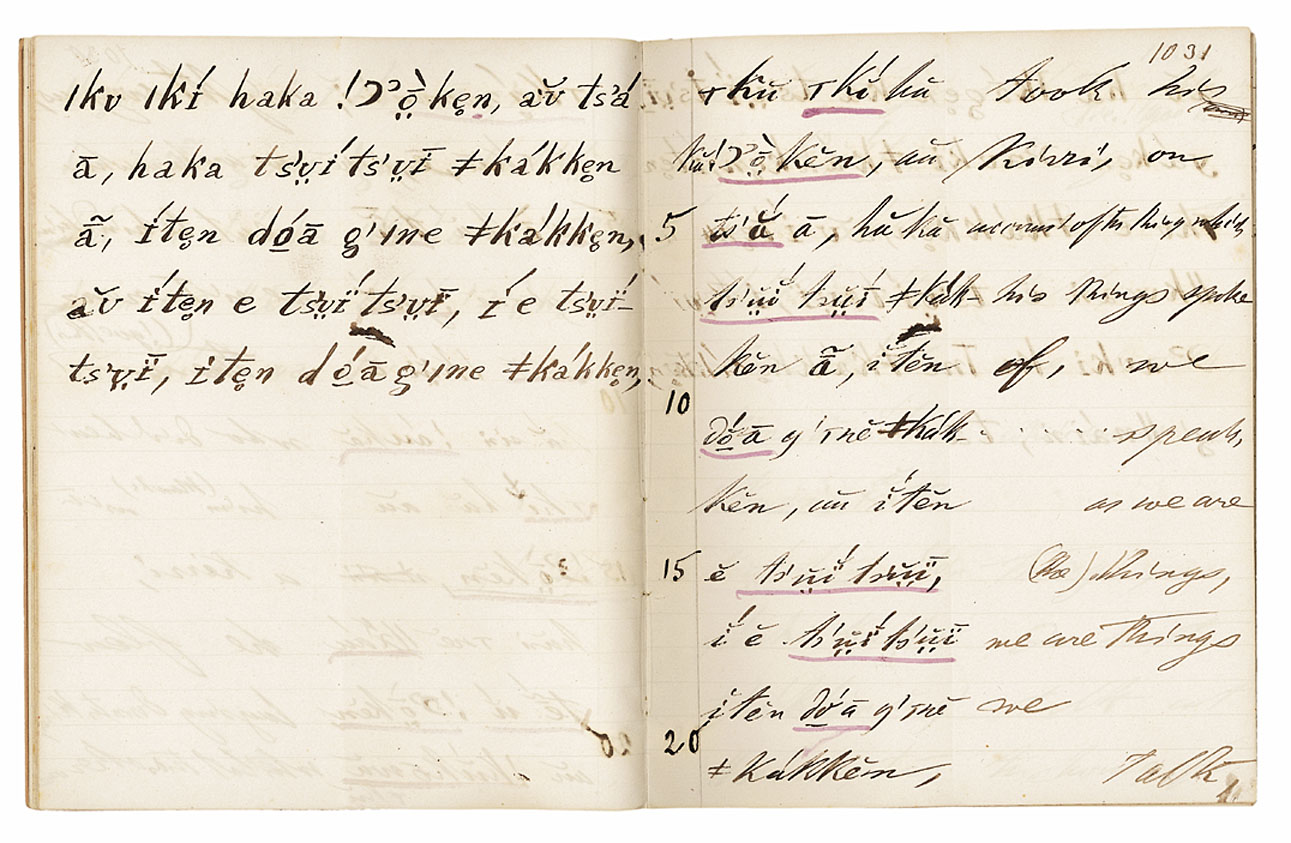 ıkʋ ıkí haka !Ɔ ̉ò̤ke̥n, aῠ ts'á
ā, haka ts'ṳíts'ṳī ǂkákke̥n
ã̄, íte̥n dó̲ā g'ıne ǂkákke̥n,
aῠ íte̥n e ts'ṳíts'ṳī, í e ts'ṳí-
ts'ṳī, ite̥n dó̲ā g'ıne ǂkákke̥n,
1031
ıkŭ ıkí hă took his
Kĕn, aŭ Kirri, on
5 ts'ắ ā, hă kă account of the thing which
ts'ṳĭ́ts'ṳĭ́ ǂkák- his things spoke
kĕn ã̄, ĭ́tĕn of, we
10
dó̲ā g'ınĕ ǂkák- . . . . speak,
kĕn, aŭ ĭ́tĕn as we are
15 ĕ ts'ṳĭ́ts'ṳī, (the) things,
ĭ́ ĕ ts'ṳĭ́ts'ṳī we are things
ĭtĕn dó̲ā g'ınĕ we
20
ǂkákkĕn, talk